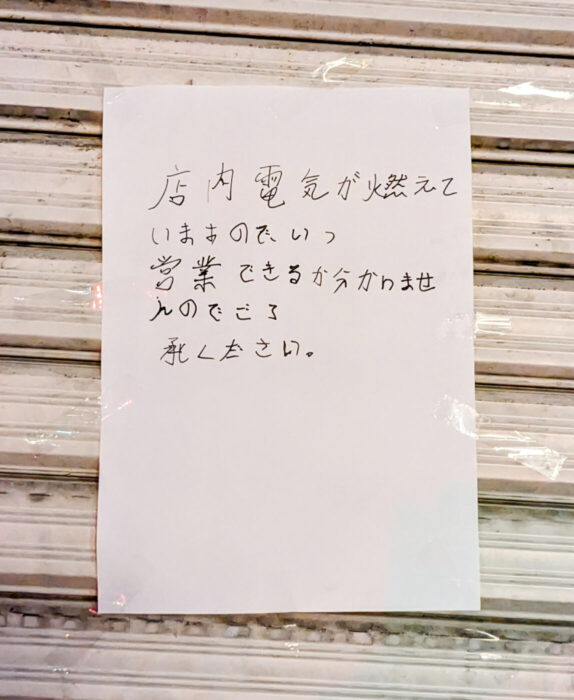 店内電気が燃えて
いますので、いつ
営業できるか分かりませ
んのでご了
承ください。